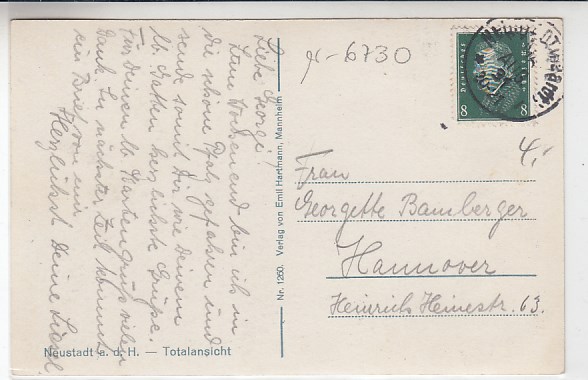 Liebe Georgi!
Zum Wochenend bin ich in
die schöne Pfalz gefahren und
sende somit Dir wie Deinem
lb. Gatten herzlichste Grüsse.
Für Deinen lb. Kartengruß vielen
Dank. In nächster Zeit kommt
ein Brief von mir
Herzlichst Deine Liesel.
Neustadt a. d. H. — Totalansicht
Nr. 1260. Verlag von Emil Hartmann, Mannheim
6730
Deutsches Reich
8 8
4,-
Frau
Georgette Bamberger
Hannover
Heinrich Heinestr. 63.